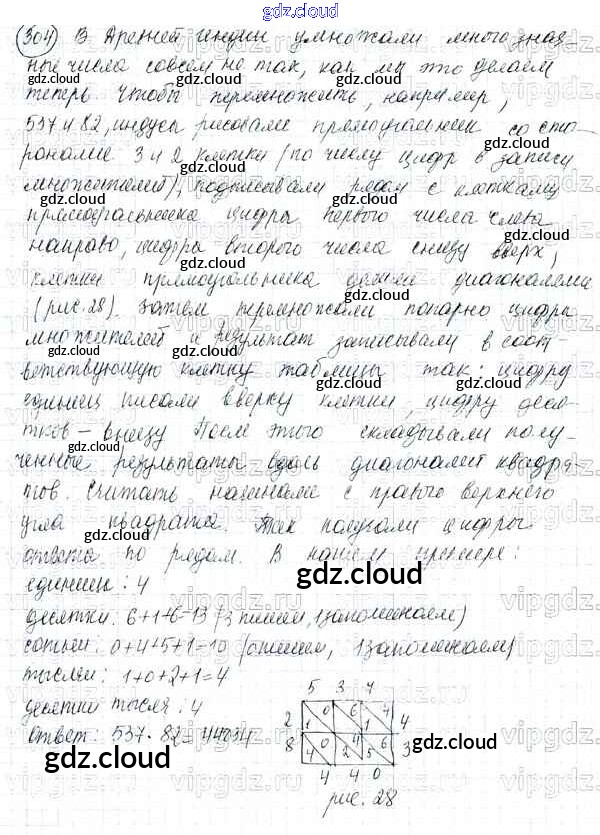 gdz.cloud
304) В Древней Индии умножали многознач
ные числа совсем не так, как мы это делаем
теперь Чтобы перемножить, например,
537 и 82, индусы рисовали прямоугольник со сто-
ронами 3 и 2 клетки (по числу цифр в записи
множителей), подписывали рядом с клетками
прямоугольника цифры первого числа слева
направо, цифры второго числа снизу вверх,
клетки прямоугольника делили диагоналями
(рис. 28). Затем перемножали попарно цифры
множителей и результат записывали в соот-
ветствующую клетку таблицы так: цифру
единиц писали вверху клетки, цифру деся-
тков – внизу После этого складывали полу-
ченные результаты вдоль диагоналей квадра-
тов. Считать начинали с правого верхнего
угла квадрата. Так получали цифры
ответа по рядам. В нашем примере:
единицы: 4
десятки: 6+1+6=13 (3 пишем, 1 запоминаем)
сотни: 0+4+5+1=10 (0 пишем, 1 запоминаем)
тысячи: 1+0+2+1=4
десятки тысяч: 4
Ответ: 537·82=44034
5 3 7
2 1 0 6 1 4 4
8 4 0 2 4 5 6 3
4 4 0
рис. 28
gdz.cloud